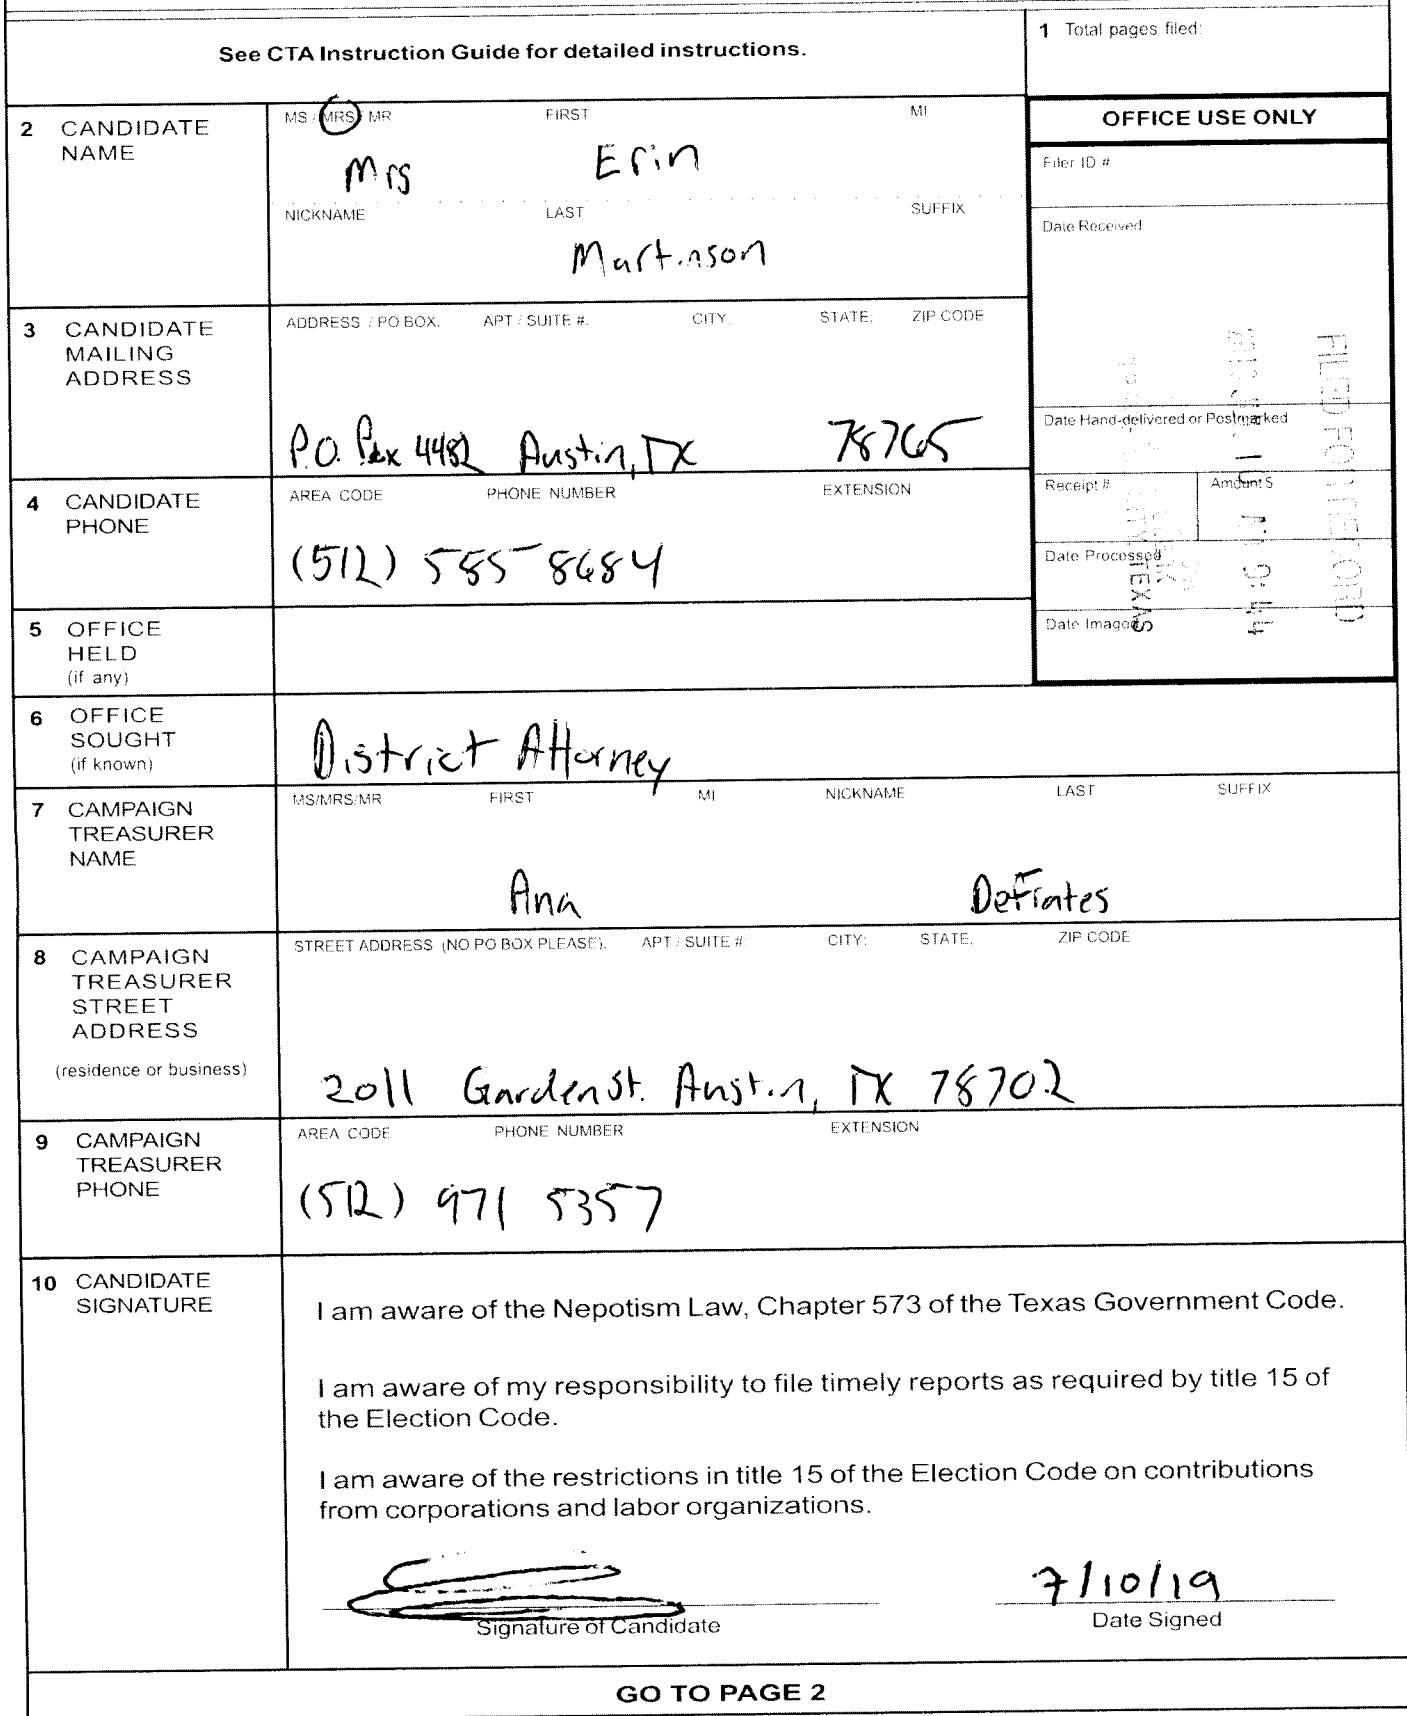 See CTA Instruction Guide for detailed instructions.
1 Total pages filed:
2 CANDIDATE NAME
MS / MRS / MR FIRST MI
Mrs Erin
NICKNAME LAST SUFFIX
Martinson
OFFICE USE ONLY
Filer ID #
Date Received
3 CANDIDATE MAILING ADDRESS
ADDRESS / PO BOX; APT / SUITE #; CITY; STATE; ZIP CODE
P.O. Box 4482 Austin, TX 78765
FILED FOR RECORD
9:44
TEXAS
Date Hand-delivered or Postmarked
Receipt # Amount $
Date Processed
Date Imaged
4 CANDIDATE PHONE
AREA CODE PHONE NUMBER EXTENSION
(512) 585-8684
5 OFFICE HELD (if any)
6 OFFICE SOUGHT (if known)
District Attorney
7 CAMPAIGN TREASURER NAME
MS/MRS/MR FIRST MI NICKNAME LAST SUFFIX
Ana DeFrates
8 CAMPAIGN TREASURER STREET ADDRESS
(residence or business)
STREET ADDRESS (NO PO BOX PLEASE); APT / SUITE #; CITY; STATE; ZIP CODE
2011 Garden St. Austin, TX 78702
9 CAMPAIGN TREASURER PHONE
AREA CODE PHONE NUMBER EXTENSION
(512) 971 5357
10 CANDIDATE SIGNATURE
I am aware of the Nepotism Law, Chapter 573 of the Texas Government Code.
I am aware of my responsibility to file timely reports as required by title 15 of
the Election Code.
I am aware of the restrictions in title 15 of the Election Code on contributions
from corporations and labor organizations.
7/10/19
Signature of Candidate Date Signed
GO TO PAGE 2